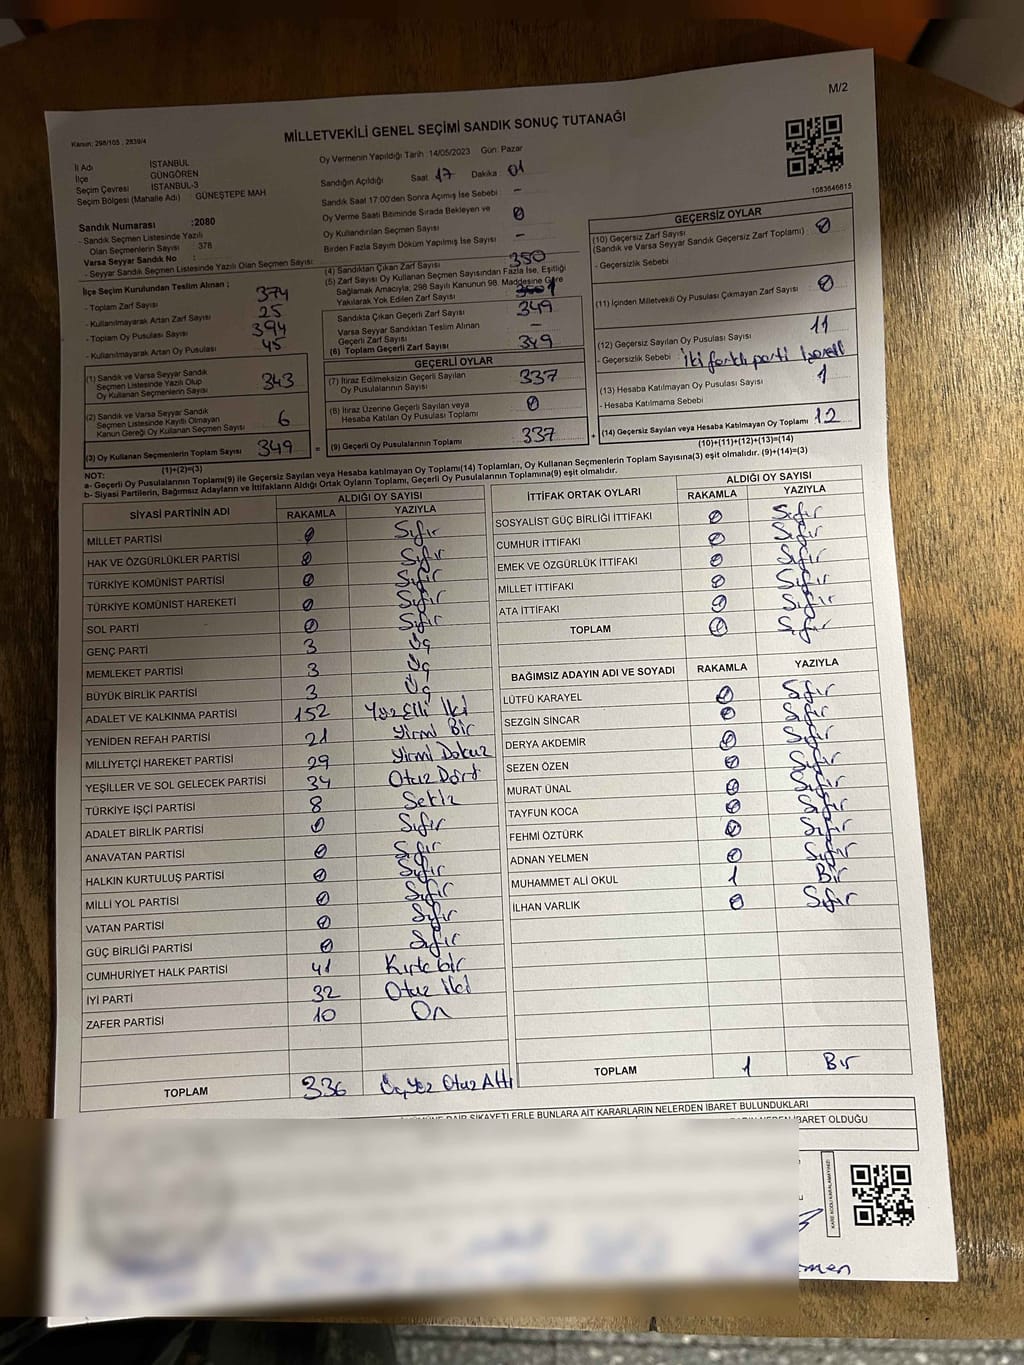 M/2
Kanun: 298/105 , 2839/4
MİLLETVEKİLİ GENEL SEÇİMİ SANDIK SONUÇ TUTANAĞI
İl Adı İSTANBUL
İlçe GÜNGÖREN
Seçim Çevresi İSTANBUL-3
Seçim Bölgesi (Mahalle Adı) GÜNEŞTEPE MAH
Sandık Numarası :2080
- Sandık Seçmen Listesinde Yazılı
Olan Seçmenlerin Sayısı : 378
Varsa Seyyar Sandık No :
- Seyyar Sandık Seçmen Listesinde Yazılı Olan Seçmen Sayısı :
Oy Vermenin Yapıldığı Tarih :14/05/2023 Gün: Pazar
Sandığın Açıldığı Saat 17 Dakika 01
Sandık Saat 17:00'den Sonra Açılmış İse Sebebi -
Oy Verme Saati Bitiminde Sırada Bekleyen ve
Oy Kullandırılan Seçmen Sayısı 0
Birden Fazla Sayım Döküm Yapılmış İse Sayısı -
1083646615
İlçe Seçim Kurulundan Teslim Alınan ;
- Toplam Zarf Sayısı 374
- Kullanılmayarak Artan Zarf Sayısı 25
- Toplam Oy Pusulası Sayısı 394
- Kullanılmayarak Artan Oy Pusulası 45
(1) Sandık ve Varsa Seyyar Sandık
Seçmen Listesinde Yazılı Olup
Oy Kullanan Seçmenlerin Sayısı 343
(2) Sandık ve Varsa Seyyar Sandık
Seçmen Listesinde Kayıtlı Olmayan
Kanun Gereği Oy Kullanan Seçmen Sayısı 6
(3) Oy Kullanan Seçmenlerin Toplam Sayısı 349
(1)+(2)=(3)
(4) Sandıktan Çıkan Zarf Sayısı 350
(5) Zarf Sayısı Oy Kullanan Seçmen Sayısından Fazla İse, Eşitliği
Sağlamak Amacıyla; 298 Sayılı Kanunun 98. Maddesine Göre
Yakılarak Yok Edilen Zarf Sayısı 1
Sandıkta Çıkan Geçerli Zarf Sayısı 349
Varsa Seyyar Sandıktan Teslim Alınan
Geçerli Zarf Sayısı -
(6) Toplam Geçerli Zarf Sayısı 349
GEÇERLİ OYLAR
(7) İtiraz Edilmeksizin Geçerli Sayılan
Oy Pusulalarının Sayısı 337
(8) İtiraz Üzerine Geçerli Sayılan veya
Hesaba Katılan Oy Pusulası Toplamı 0
= (9) Geçerli Oy Pusulalarının Toplamı 337 +
GEÇERSİZ OYLAR
(10) Geçersiz Zarf Sayısı 0
(Sandık ve Varsa Seyyar Sandık Geçersiz Zarf Toplamı)
- Geçersizlik Sebebi
(11) İçinden Milletvekili Oy Pusulası Çıkmayan Zarf Sayısı 0
(12) Geçersiz Sayılan Oy Pusulası Sayısı 11
- Geçersizlik Sebebi İki farklı parti
(13) Hesaba Katılmayan Oy Pusulası Sayısı 1
- Hesaba Katılmama Sebebi
(14) Geçersiz Sayılan veya Hesaba Katılmayan Oy Toplamı 12
(10)+(11)+(12)+(13)=(14)
NOT:
a- Geçerli Oy Pusulalarının Toplamı(9) ile Geçersiz Sayılan veya Hesaba katılmayan Oy Toplamı(14) Toplamları, Oy Kullanan Seçmenlerin Toplam Sayısına(3) eşit olmalıdır. (9)+(14)=(3)
b- Siyasi Partilerin, Bağımsız Adayların ve İttifakların Aldığı Ortak Oyların Toplamı, Geçerli Oy Pusulalarının Toplamına(9) eşit olmalıdır.
SİYASİ PARTİNİN ADI ALDIĞI OY SAYISI
RAKAMLA YAZIYLA
MİLLET PARTİSİ 0 Sıfır
HAK VE ÖZGÜRLÜKLER PARTİSİ 0 Sıfır
TÜRKİYE KOMÜNİST PARTİSİ 0 Sıfır
TÜRKİYE KOMÜNİST HAREKETİ 0 Sıfır
SOL PARTİ 0 Sıfır
GENÇ PARTİ 3 Üç
MEMLEKET PARTİSİ 3 Üç
BÜYÜK BİRLİK PARTİSİ 3 Üç
ADALET VE KALKINMA PARTİSİ 152 Yüz Elli İki
YENİDEN REFAH PARTİSİ 21 Yirmi Bir
MİLLİYETÇİ HAREKET PARTİSİ 29 Yirmi Dokuz
YEŞİLLER VE SOL GELECEK PARTİSİ 34 Otuz Dört
TÜRKİYE İŞÇİ PARTİSİ 8 Sekiz
ADALET BİRLİK PARTİSİ 0 Sıfır
ANAVATAN PARTİSİ 0 Sıfır
HALKIN KURTULUŞ PARTİSİ 0 Sıfır
MİLLİ YOL PARTİSİ 0 Sıfır
VATAN PARTİSİ 0 Sıfır
GÜÇ BİRLİĞİ PARTİSİ 0 Sıfır
CUMHURİYET HALK PARTİSİ 41 Kırk bir
İYİ PARTİ 32 Otuz İki
ZAFER PARTİSİ 10 On
TOPLAM 336 Üç Yüz Otuz Altı
İTTİFAK ORTAK OYLARI ALDIĞI OY SAYISI
RAKAMLA YAZIYLA
SOSYALİST GÜÇ BİRLİĞİ İTTİFAKI 0 Sıfır
CUMHUR İTTİFAKI 0 Sıfır
EMEK VE ÖZGÜRLÜK İTTİFAKI 0 Sıfır
MİLLET İTTİFAKI 0 Sıfır
ATA İTTİFAKI 0 Sıfır
TOPLAM 0 Sıfır
BAĞIMSIZ ADAYIN ADI VE SOYADI RAKAMLA YAZIYLA
LÜTFÜ KARAYEL 0 Sıfır
SEZGİN SİNCAR 0 Sıfır
DERYA AKDEMİR 0 Sıfır
SEZEN ÖZEN 0 Sıfır
MURAT ÜNAL 0 Sıfır
TAYFUN KOCA 0 Sıfır
FEHMİ ÖZTÜRK 0 Sıfır
ADNAN YELMEN 0 Sıfır
MUHAMMET ALİ OKUL 1 Bir
İLHAN VARLIK 0 Sıfır
TOPLAM 1 Bir
ŞİKAYETLERLE BUNLARA AİT KARARLARIN NELERDEN İBARET BULUNDUKLARI
İBARET OLDUĞU
KARE KODU KARALAMAYINIZ!